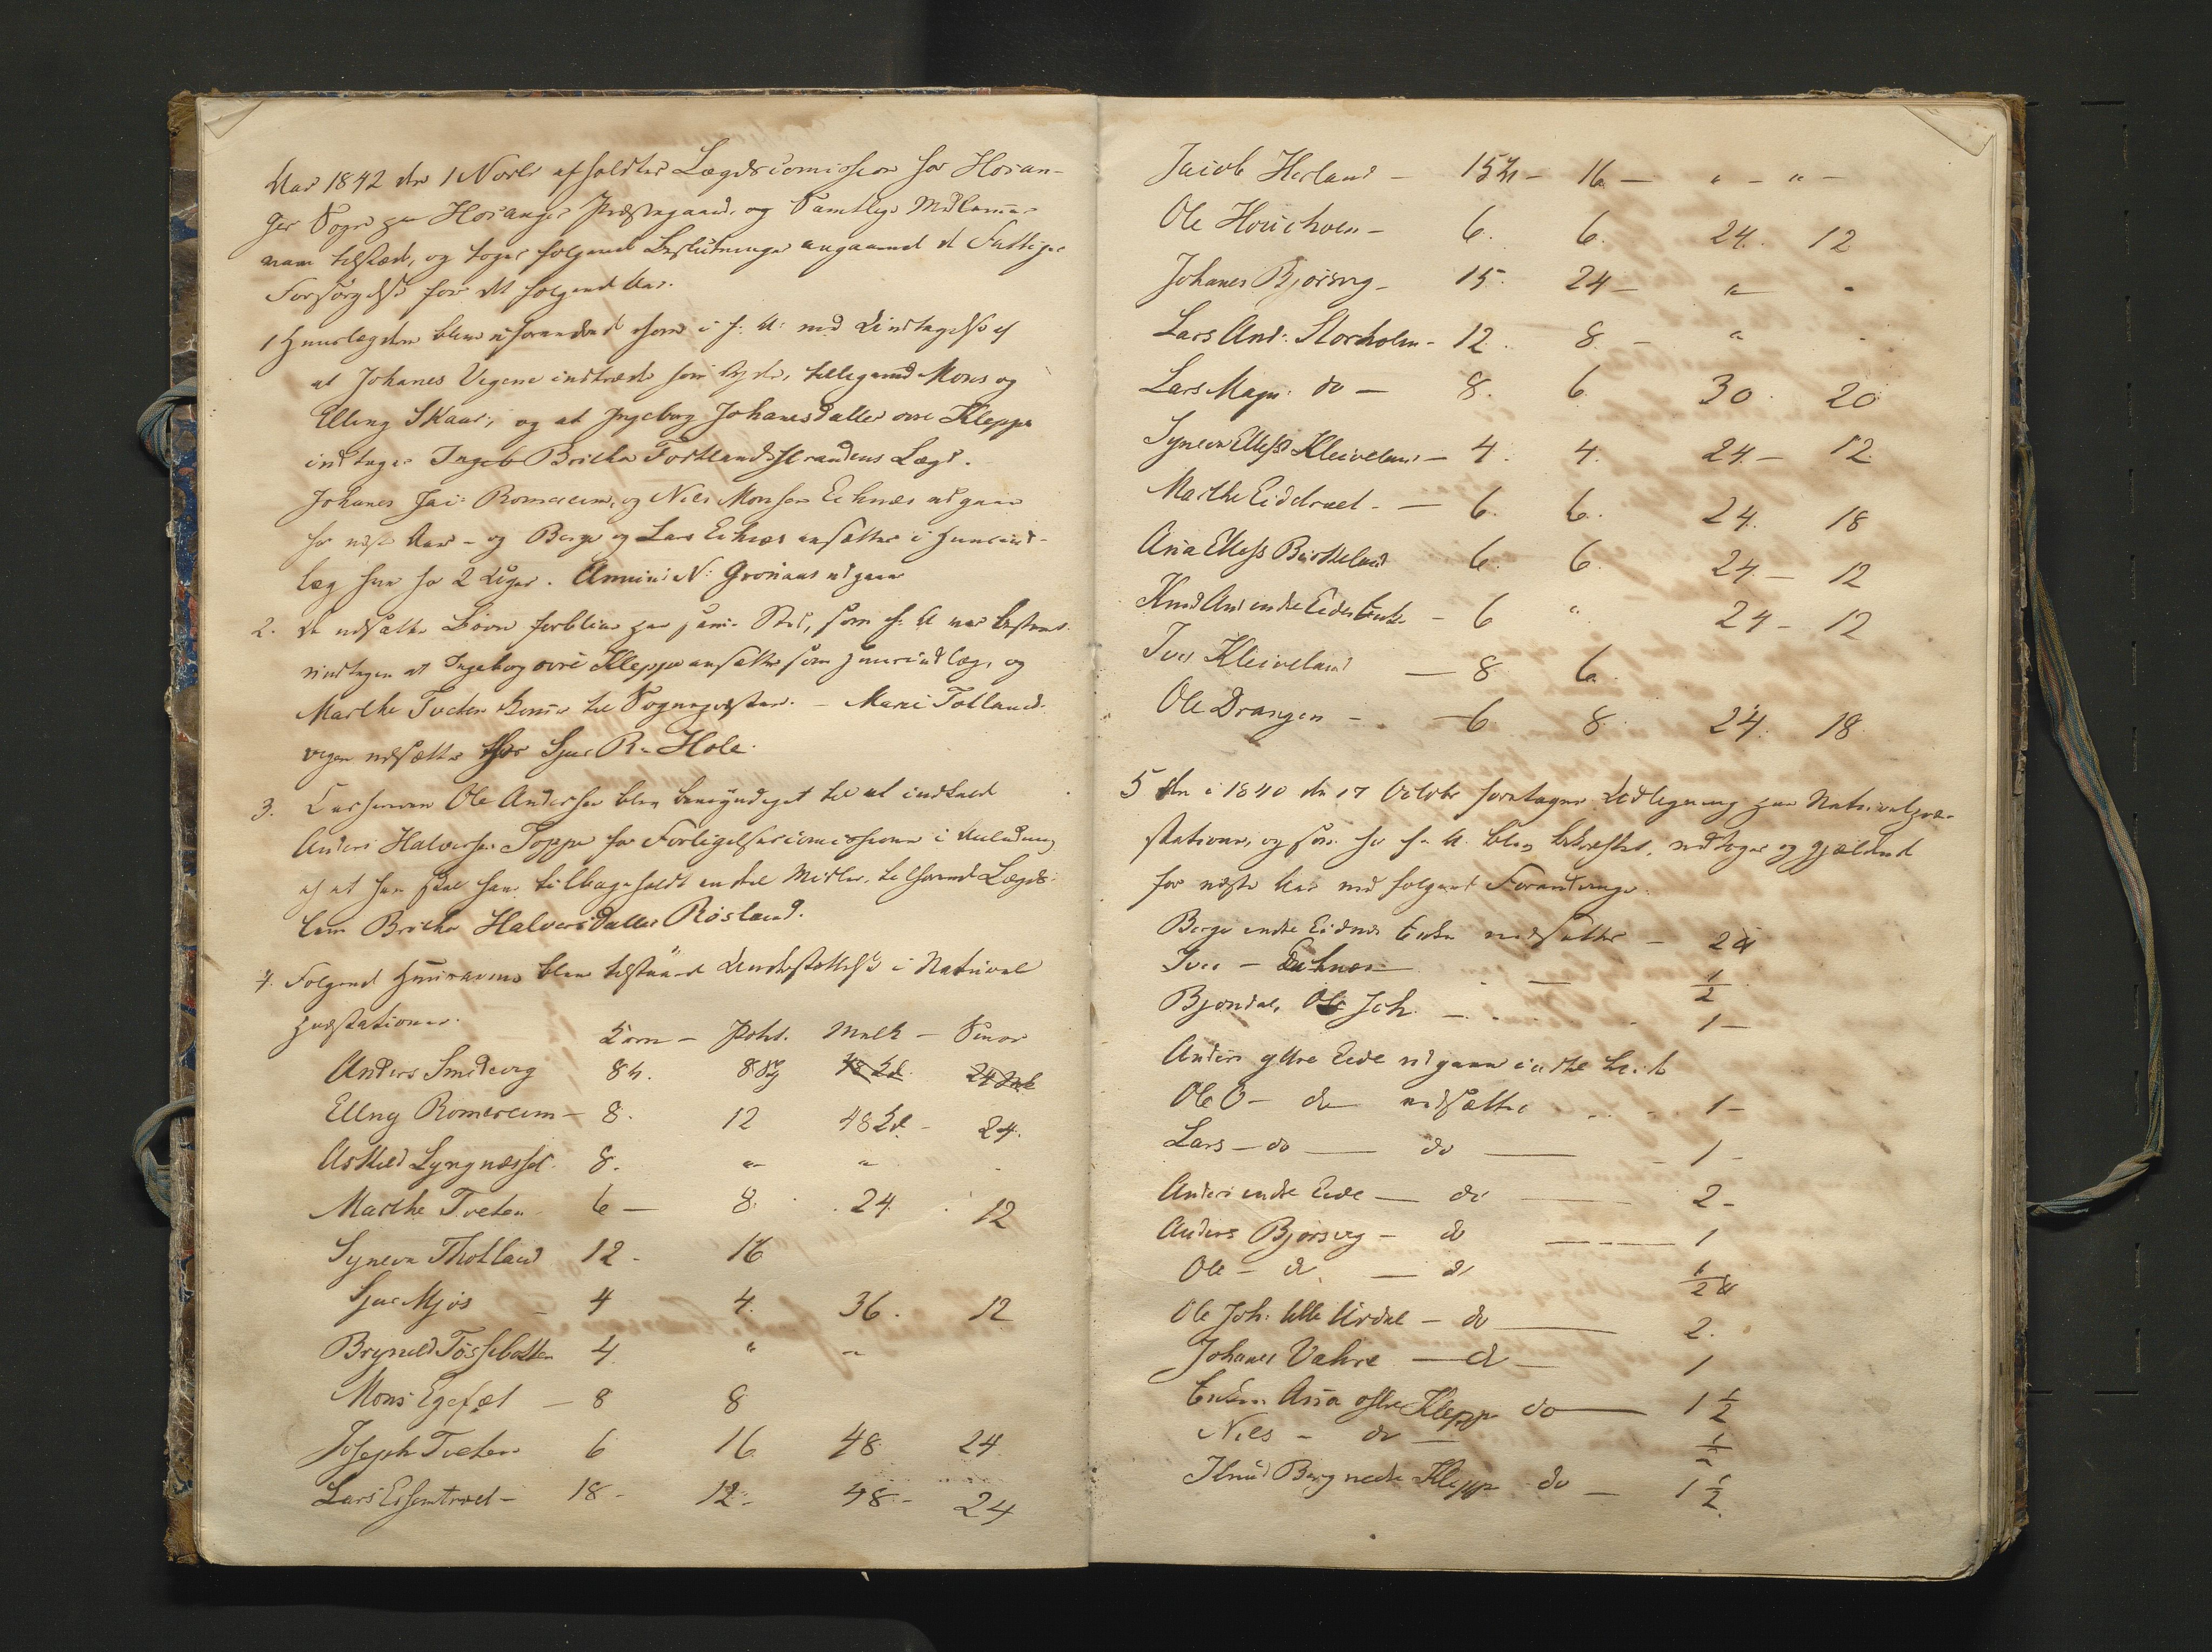 Aar 1842 den 1 Novbr afholdtes Lægdscomission for Hosan-
ger Sogn paa Hosanger Præstegaard, og Samtlige Medlemmer
vare tilstæde, og toges følgende Beslutninger angaaende de Fattiges
Forsørgelse for det følgende Aar.
1 Huuslægden bleve uforandret som i f: A: med Undtagelse af
at Johanes Vegene indtræde som Yder, tilligemed Mons og
Elling Skaar, og at Ingeborg Johanesdatter øvre Kleppe
indtages Ingeb Brithe Fortlandsstrandens Lægd.
Johanes Jac: Romereim, og Niels Monsen Eiknæs udgaar
for næste Aar - og Berge og Lars Eiknæs ansættes i Huusind-
læg for 2 Uger. Annini N: Gronaas udgaar
2. De udsatte Børn forblive paa samme Sted, som f: A var bestemt
undtagen at Ingeborg øvre Kleppe ansættes som Huusindlæg, og
Marthe Tveten kommer til Sognepræsten. - Mari Totland
udsættes hos Sjur R. Hole.
3. Cassereren Ole Anderssen blev bemyndiget til at indkald
Anders Halvorsen Toppe for Forligelsescomissionen i Anledning
af at han skal have tilbageholdt endeel Midler, tilhørende Lægds-
lem Brithe Halvorsdatter Røsland.
4. Følgende Huusarme bleve tilstaaet Understøttelse i Natural
præstationer.
Korn - Potet. Melk - Smør
Anders Smidevig 8 8
Elling Romereim - 8. 12 48 24.
Askild Lyngnæsset 8. " "
Marthe Tveten 6 - 8. 24. 12
Syneva Thotland 12 - 16
Sjur Mjøs - 4 4. 36. 12
Brynild Tossebotten 4. " "
Mons Egefæt - 8 8
Joseph Tveten 6 16 48 24
Lars Eisentræet - 18 - 12 - 48 - 24
Jacob Herland - 15 - 16 - " - " -
Ole Houchoen - 6. 6. 24. 12
Johanes Bjørsvig - 15. 24 - " -
Lars And: Storholm - 12. 8 - "
Lars Magn: do - 8. 6 30. 20
Syneva Kleiveland - 4. 4. 24 - 12
Marthe Eidetræet - 6. 6. 24. 18
Anna Birkeland 6. 6. 24 - 12
Knud And indre Eides Enke - 6 " 24 - 12
Iver Kleiveland - 8 6.
Ole Drangen - 6 8 24. 18
5 Den i 1840 den 17 Octobr foretagne Udligning paa Naturalpræ-
stationer, og som for f. A. blev bekræftet, vedtoges og gjældende
for næste Aar med følgende Forandringer.
Berge indre Eidnæs Enke nedsættes - 2
Iver - Eiknæs - 1/2
Bjondal, Ole Joh. - 1 -
Anders yttre Eide udgaar
Ole O - do nedsættes 1 -
Lars - do - do - 1 -
Anders indre Eide - do - 2 -
Anders Bjørsvig - do - 1
Ole - do - do 1/2
Ole Joh. lille Urdal - do - 2.
Johanes Vahre - do - 1
Enken Anna østre Kleppe do - 1 1/2
Niels - do - 1/2
Knud Berg nedre Kleppe - do - 1 1/2.